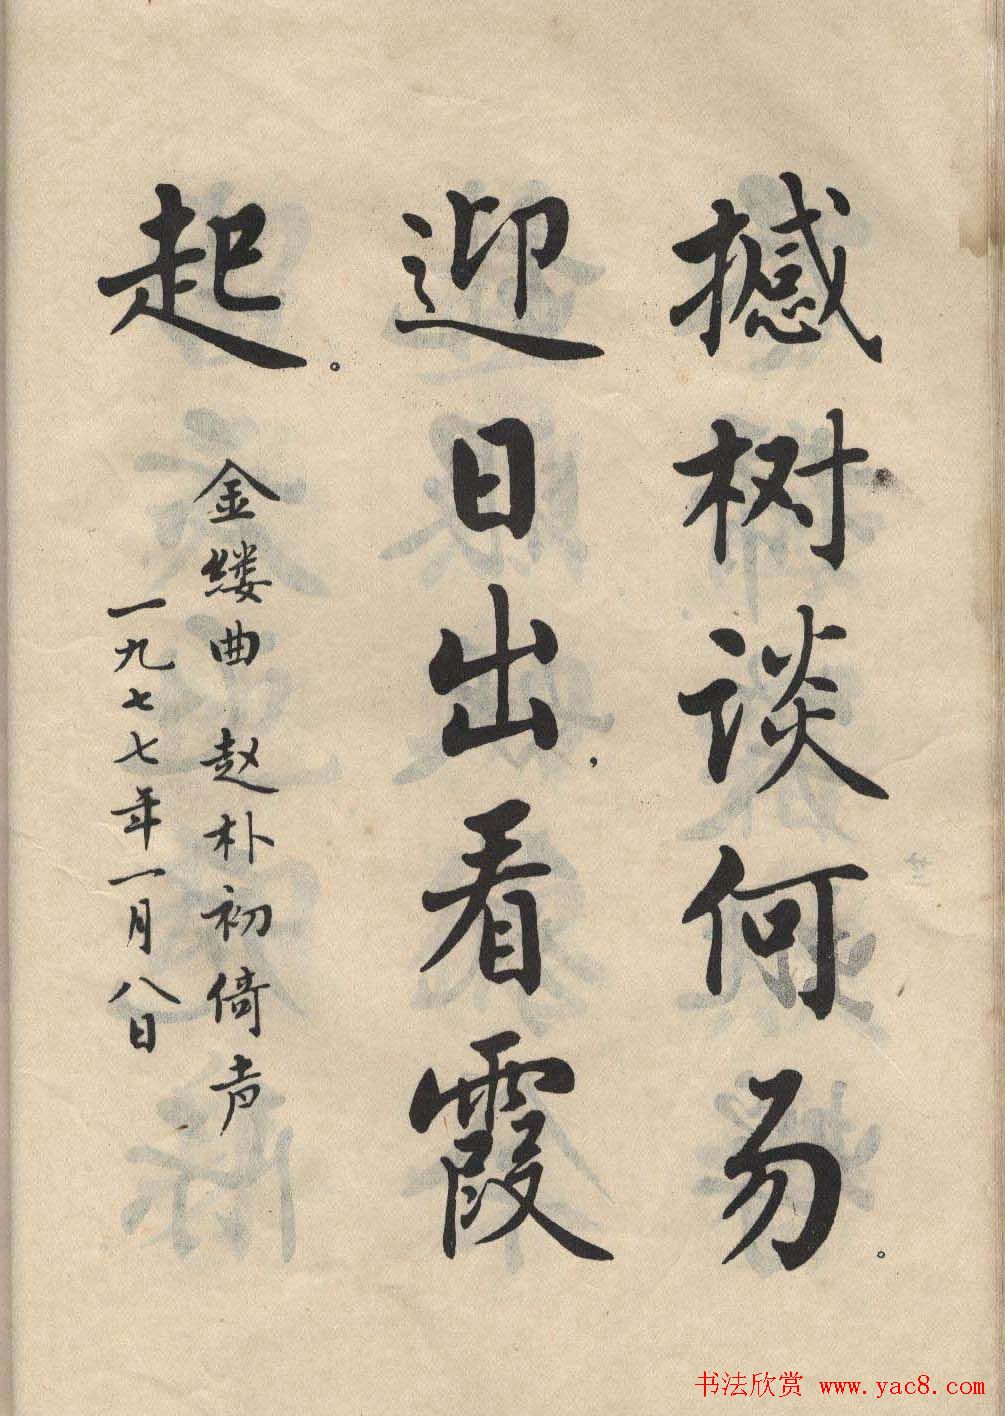 撼树谈何易。
迎日出，看霞
起。
金缕曲 赵朴初倚声
一九七七年一月八日
书法欣赏 www.yac8.com